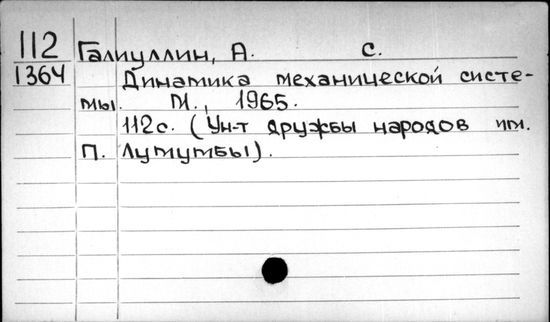 112 Галиуллин, А. С.
1364 Динамика механической систе-
мы. М., 1965.
112с. (Ун-т дружбы народов им.
П. Лумумбы).